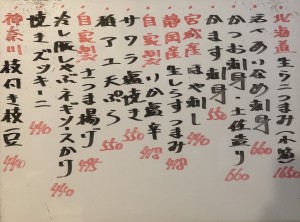 北海道 生ウニつまみ(小箱) 1650
活〆あいなめ刺身 660
かつお刺身・土佐造り 660
宮城産 ほや刺し 440
静岡産 生しらすつまみ 418
自家製 いか塩辛 418
サワラ塩焼き 550
稚アユ天ぷら 550
自家製 さつま揚げ 495
冷し豚しゃぶネギソースがけ 440
焼きズッキーニ 440
神奈川 枝付き枝豆 440